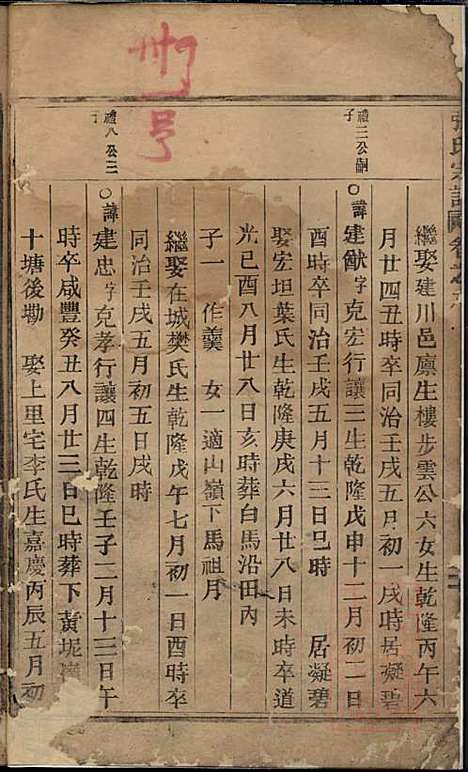 卅一号
張氏宗譜
繼娶建川邑廪生樓步雲公六女生乾隆丙午六
月廿四丑時卒同治壬戌五月初一戌時居凝碧
禮三公嗣子
○諱建猷字克宏行讓三生乾隆戊申十二月初二日
酉時卒同治壬戌五月十三日巳時 居凝碧
娶宏坦葉氏生乾隆庚戌六月廿八日未時卒道
光己酉八月廿八日亥時葬白馬沿田內
子一 作羹 女一適山嶺下馬祖月
繼娶在城樊氏生乾隆戊午七月初一日酉時卒
同治壬戌五月初五日戌時
禮八公三子
○諱建忠字克孝行讓四生乾隆壬子二月十三日午
時卒咸豐癸丑八月廿三日巳時葬下黃坭
十塘後塍 娶上里宅李氏生嘉慶丙辰五月初